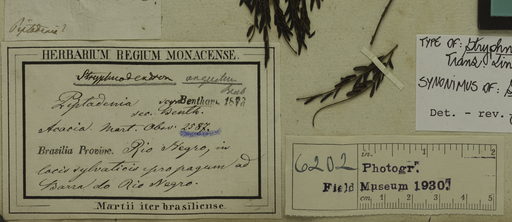 Piptadenia?
HERBARIUM REGIUM MONACENSE.
Stryphnodendron angustum
Benth
Piptadenia
sec. Benth.
Bentham. 1873
Acacia Mart. Obs. 2587.
Brasilia Provinc. Rio Negro, in
locis sylvaticis propagum ad
Barra do Rio Negro.
Martii iter brasiliense.
TYPE OF: Stryphn
Trans. Lin
SYNONIMUS OF: S
Det. - rev.
6202
in. 1 2
Photogr.
Field Museum 1930?
cm. 1 2 3 4 5